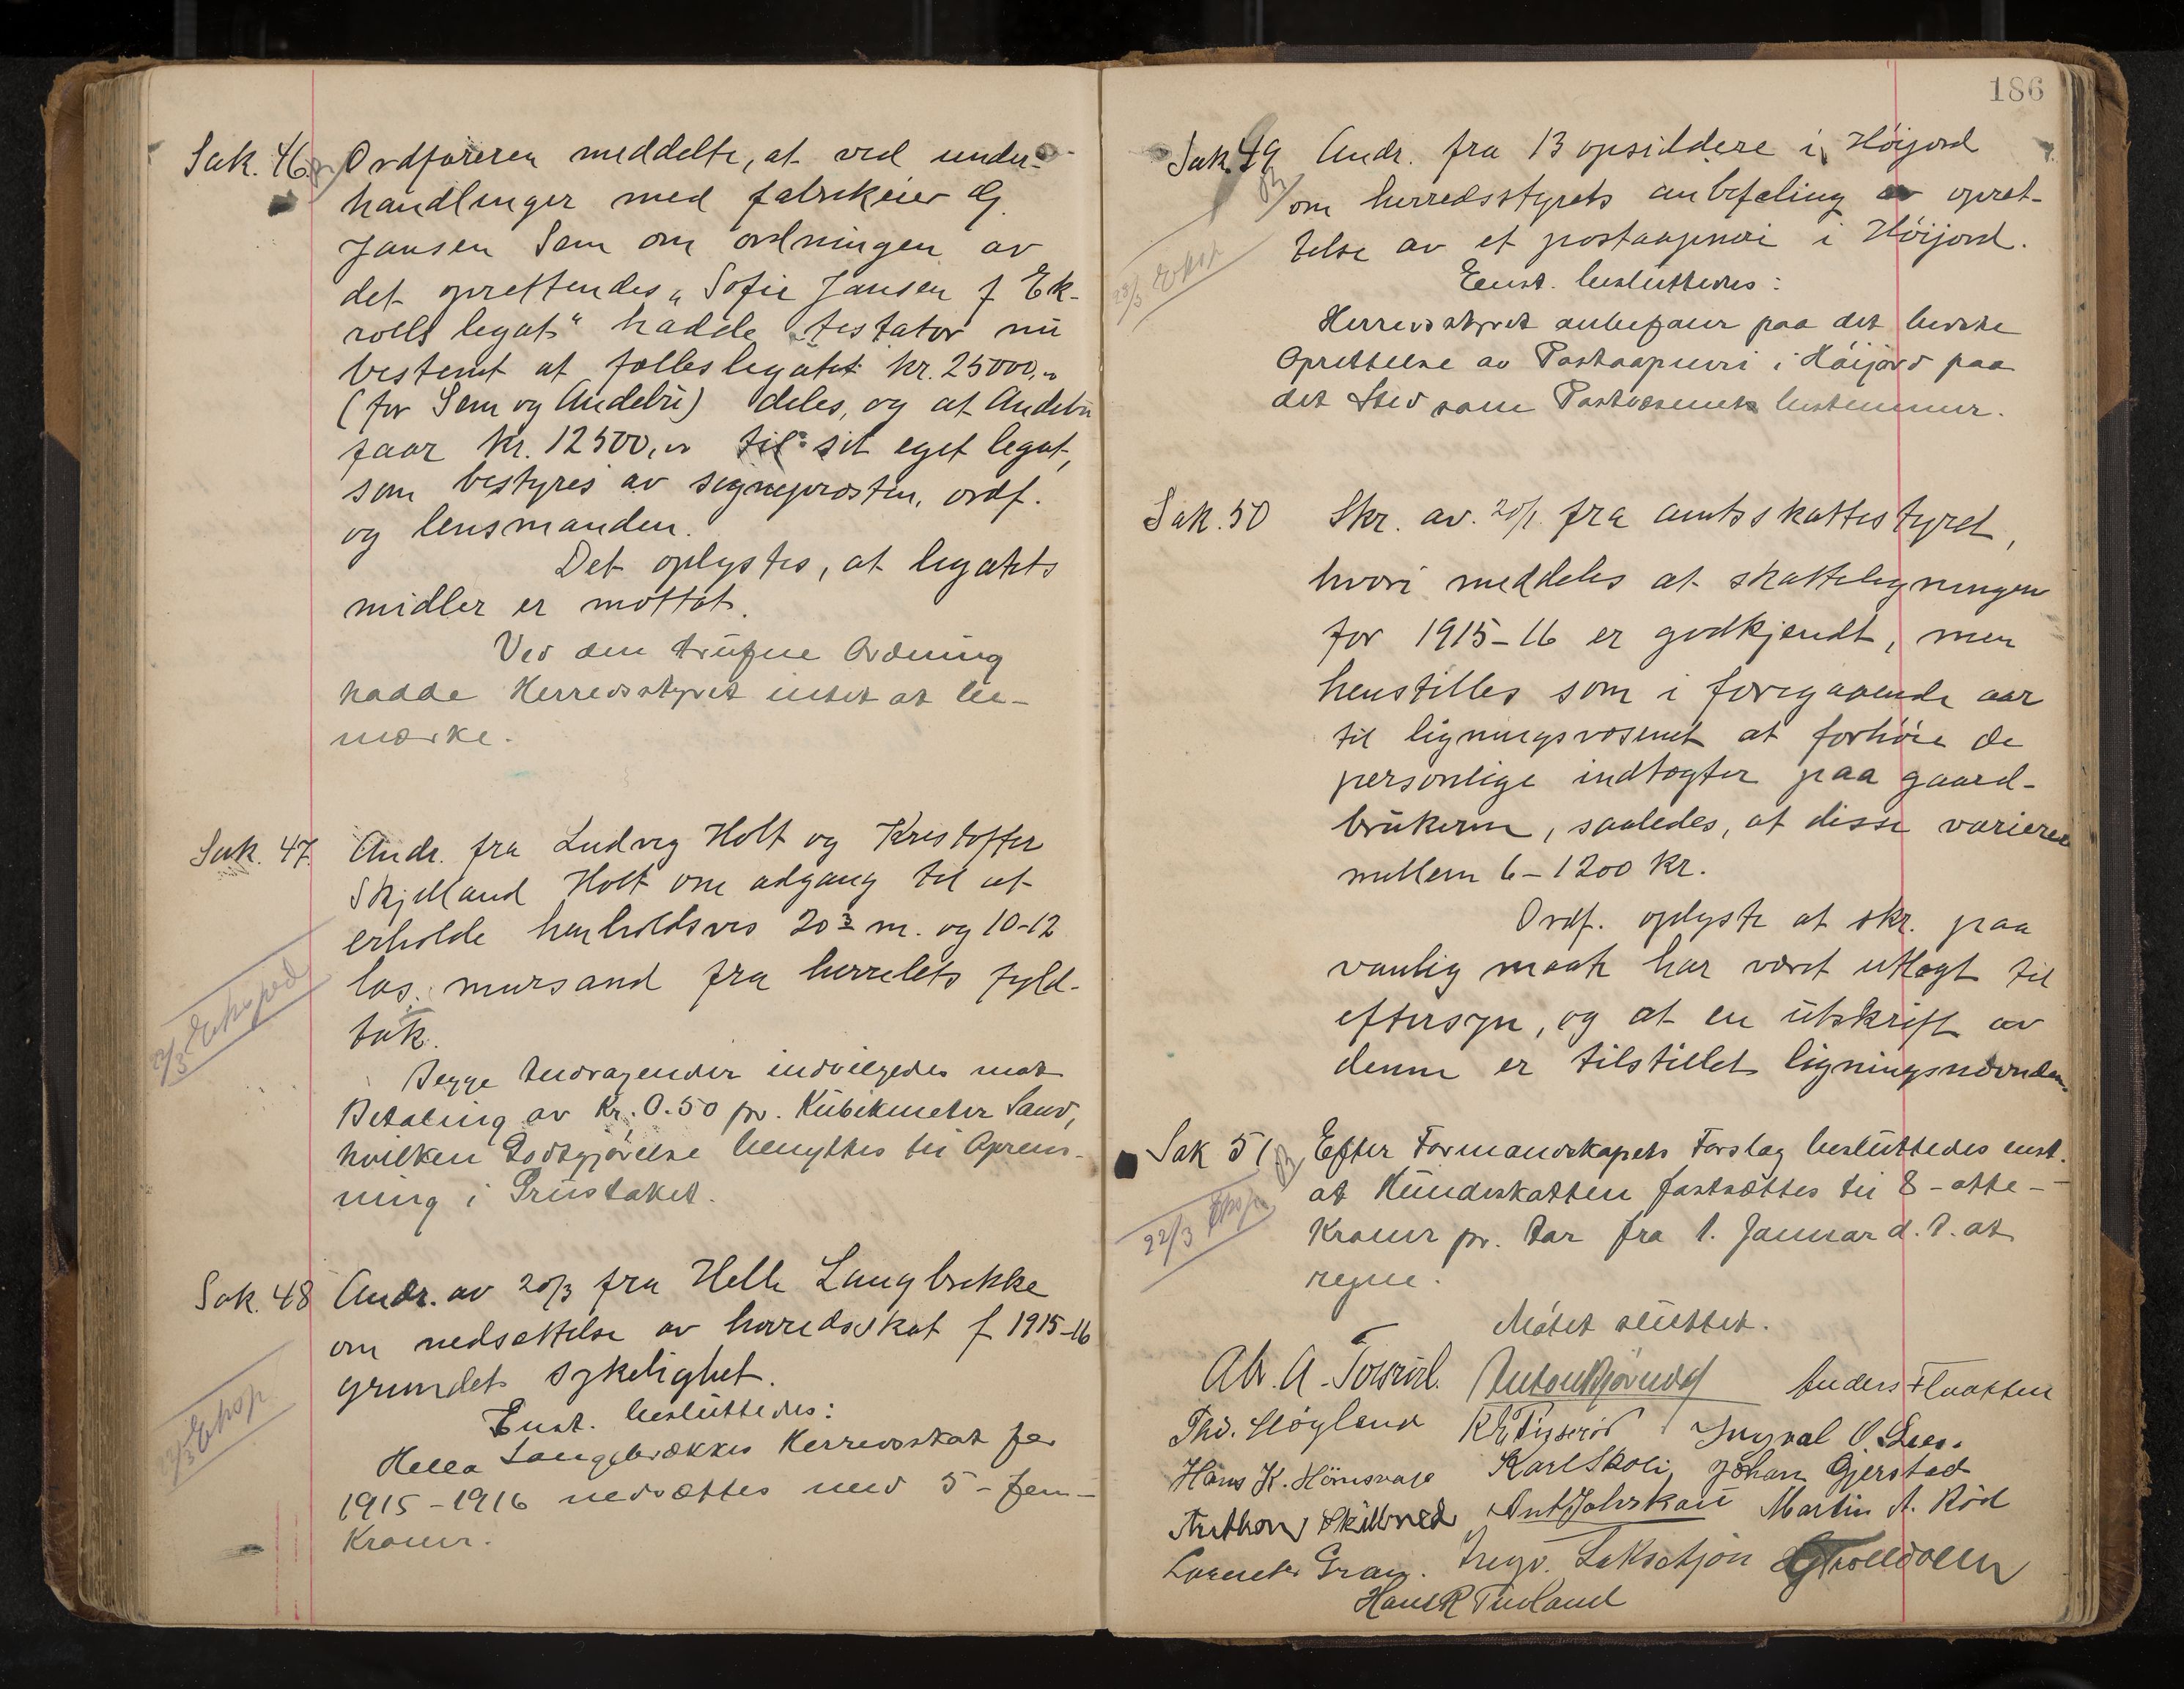 Sak. 46. Ordføreren meddelte, at ved under-
handlinger med fabrikeier Hj.
Jansen Sem om ordningen av
det oprettendes „Sofie Jansen f Ek-
rolls legat" hadde testator nu
bestemt at fælleslegatet kr. 25000,"
(for Sem og Andebu) deles, og at Andebu
faar kr. 12500," til sit eget legat,
som bestyres av sogneprosten, ordf.
og lensmanden.
Det oplystes, at legatets
midler er mottat.
Ved den trufne Ordning
hadde Herredsstyret intet at be-
mærke.
Sak. 47. Andr. fra Ludvig Holt og Kristoffer
Skjelland Holt om adgang til at
erholde henholdsvis 20 3 m. og 10-12
las mursand fra herredets fyld-
tak.
22/3 Eksped.
Begge Andragender indvilgedes mot
Betaling av Kr. 0.50 pr. Kubikmeter Sand,
hvilken Godtgjørelse benyttes til Oprens-
ning i Grustaket.
Sak. 48 Andr. av 20/3 fra Helle Langbrekke
om nedsættelse av herredsskat f 1915-16
grundet sykelighet.
22/3 Eksp.
Enst. besluttedes:
Hella Langebrækkes Herredsskat for
1915-1916 nedsættes med 5 - fem -
Kroner.
186
Sak. 49 Andr. fra 13 opsiddere i Høijord
om herredsstyrets anbefaling av opret-
telse av et postaapneri i Høijord.
23/3 Eksp.
Enst. besluttedes:
Herredsstyret anbefaler paa det bedste
Oprettelse av Postaapneri i Høijord paa
det Sted som Postvæsenet bestemmer.
Sak. 50 Skr. av. 20/1. fra amtsskattestyret,
hvori meddeles at skatteligningen
for 1915-16 er godkjendt, men
henstilles som i foregaaende aar
til ligningsvæsenet at forhøie de
personlige indtægter paa gaard-
brukerne, saaledes, at disse varierer
mellem 6-1200 kr.
Ordf. oplyste at skr. paa
vanlig maate har været utlagt til
eftersyn, og at en utskrift av
denne er tilstillet ligningsnævnden.
Sak 51 Efter Formandskapets Forslag besluttedes enst.
at Hundeskatten fastsættes til 8 - otte -
Kroner pr. Aar fra 1. Januar d. A. at
regne.
22/3 Eksp.
Møtet sluttet.
Abr. A. Anton Anders Flaatten
Thv. Høyland Kr. Tigserød Ingval O. Lees.
Hans K. Karl Skoli Johan Gjerstad
Anthon Ant Martin A. Rød
Laurets Gran. Ingv. Trolldalen
Hans R Tuland